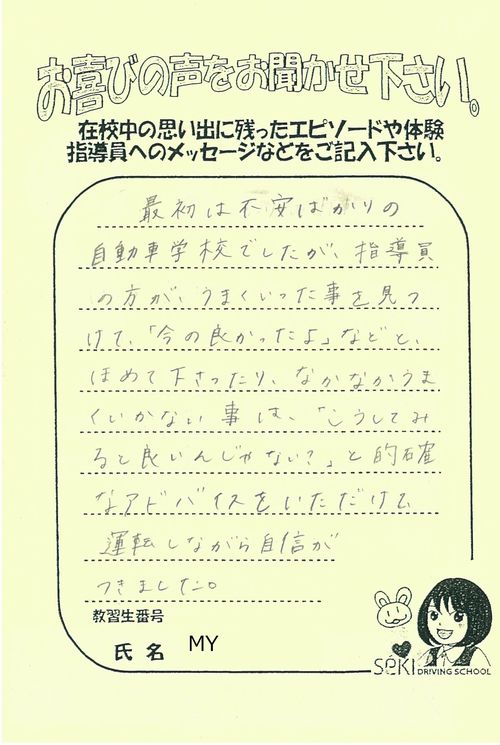 お喜びの声をお聞かせ下さい。
在校中の思い出に残ったエピソードや体験
指導員へのメッセージなどをご記入下さい。
最初は不安ばかりの
自動車学校でしたが、指導員
の方が、うまくいった事を見つ
けて、「今の良かったよ」などと、
ほめて下さったり、なかなかうま
くいかない事は、「こうしてみ
ると良いんじゃない?」と的確
なアドバイスをいただけて
運転しながら自信が
つきました。
教習生番号
氏名 MY
SEKI DRIVING SCHOOL